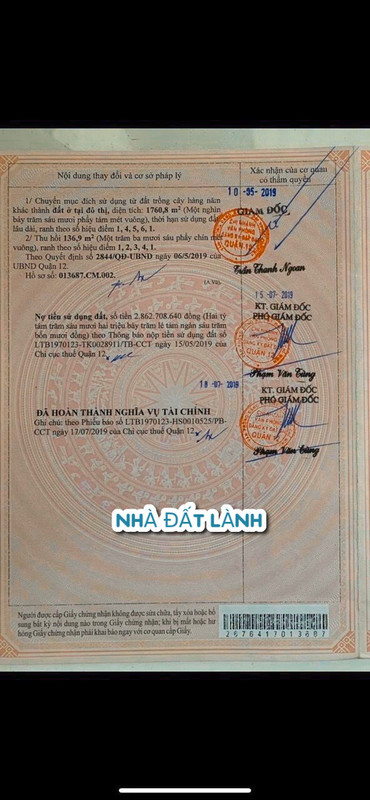 Nội dung thay đổi và cơ sở pháp lý
Xác nhận của cơ quan
có thẩm quyền
10-05-2019
1/ Chuyển mục đích sử dụng từ đất trồng cây hàng năm
khác thành đất ở tại đô thị, diện tích: 1760,8 m² (Một nghìn
bảy trăm sáu mươi phẩy tám mét vuông), thời hạn sử dụng đất
lâu dài, ranh theo số hiệu điểm 1, 4, 5, 6, 1.
2/ Thu hồi 136,9 m² (Một trăm ba mươi sáu phẩy chín mét
vuông), ranh theo số hiệu điểm 1, 2, 3, 4, 1.
Theo Quyết định số 2844/QĐ-UBND ngày 06/5/2019 của
UBND Quận 12.
Hồ sơ số: 013687.CM.002.
(A.Vũ)
GIÁM ĐỐC
CHI NHÁNH
VĂN PHÒNG
ĐĂNG KÝ ĐẤT ĐAI
QUẬN 12
Trần Thanh Ngoan
15-07-2019
Nợ tiền sử dụng đất, số tiền 2.862.708.640 đồng (Hai tỷ
tám trăm sáu mươi hai triệu bảy trăm lẻ tám ngàn sáu trăm
bốn mươi đồng) theo Thông báo nộp tiền sử dụng đất số
LTB1970123-TK0028911/TB-CCT ngày 15/05/2019 của
Chi cục thuế Quận 12.
KT. GIÁM ĐỐC
PHÓ GIÁM ĐỐC
VĂN PHÒNG
ĐĂNG KÝ ĐẤT ĐAI
QUẬN 12
Phạm Văn Tùng
18-07-2019
ĐÃ HOÀN THÀNH NGHĨA VỤ TÀI CHÍNH
Ghi chú: theo Phiếu báo số LTB1970123-HS0010525/PB-
CCT ngày 17/07/2019 của Chi cục thuế Quận 12.
KT. GIÁM ĐỐC
PHÓ GIÁM ĐỐC
VĂN PHÒNG
ĐĂNG KÝ ĐẤT ĐAI
QUẬN 12
Phạm Văn Tùng
NHÀ ĐẤT LÀNH
Người được cấp Giấy chứng nhận không được sửa chữa, tẩy xóa hoặc bổ
sung bất kỳ nội dung nào trong Giấy chứng nhận; khi bị mất hoặc hư
hỏng Giấy chứng nhận phải khai báo ngay với cơ quan cấp Giấy.
2676417013687